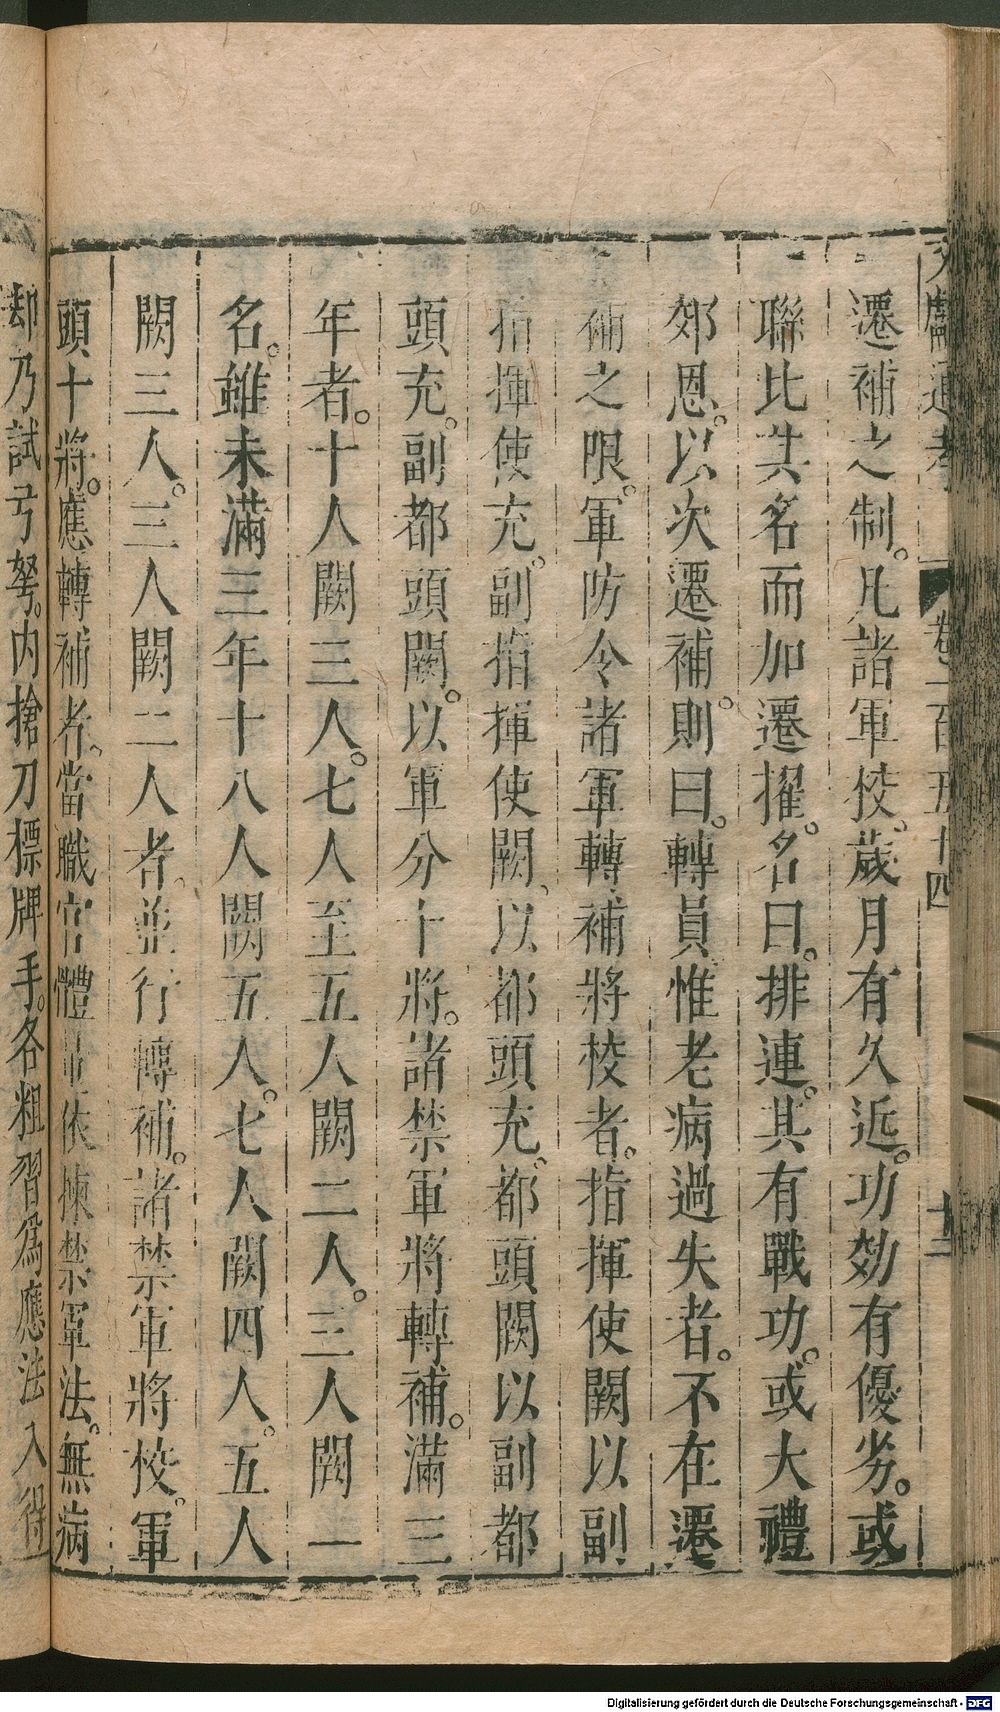 文獻通考 卷一百五十四 十二
遷補之制。凡諸軍校。歲月有久近。功効有優劣。或
聯比其名而加遷擢。名曰。排連。其有戰功。或大禮
郊恩。以次遷補。則曰。轉員惟老病過失者。不在遷
補之限。軍防令諸軍轉補將校者。指揮使闕以副
指揮使充。副指揮使闕。以都頭充。都頭闕以副都
頭充。副都頭闕。以軍分十將。諸禁軍將轉補。滿三
年者。十人闕三人。七人至五人闕二人。三人闕一
名。雖未滿三年十八人闕五人。七人闕四人。五人
闕三人。三人闕二人者。並行轉補。諸禁軍將校。軍
頭十將。應轉補者。當職官體量依揀禁軍法。無病
却乃試弓弩。內搶刀標牌手。各粗習爲應法入得
Digitalisierung gefördert durch die Deutsche Forschungsgemeinschaft - DFG